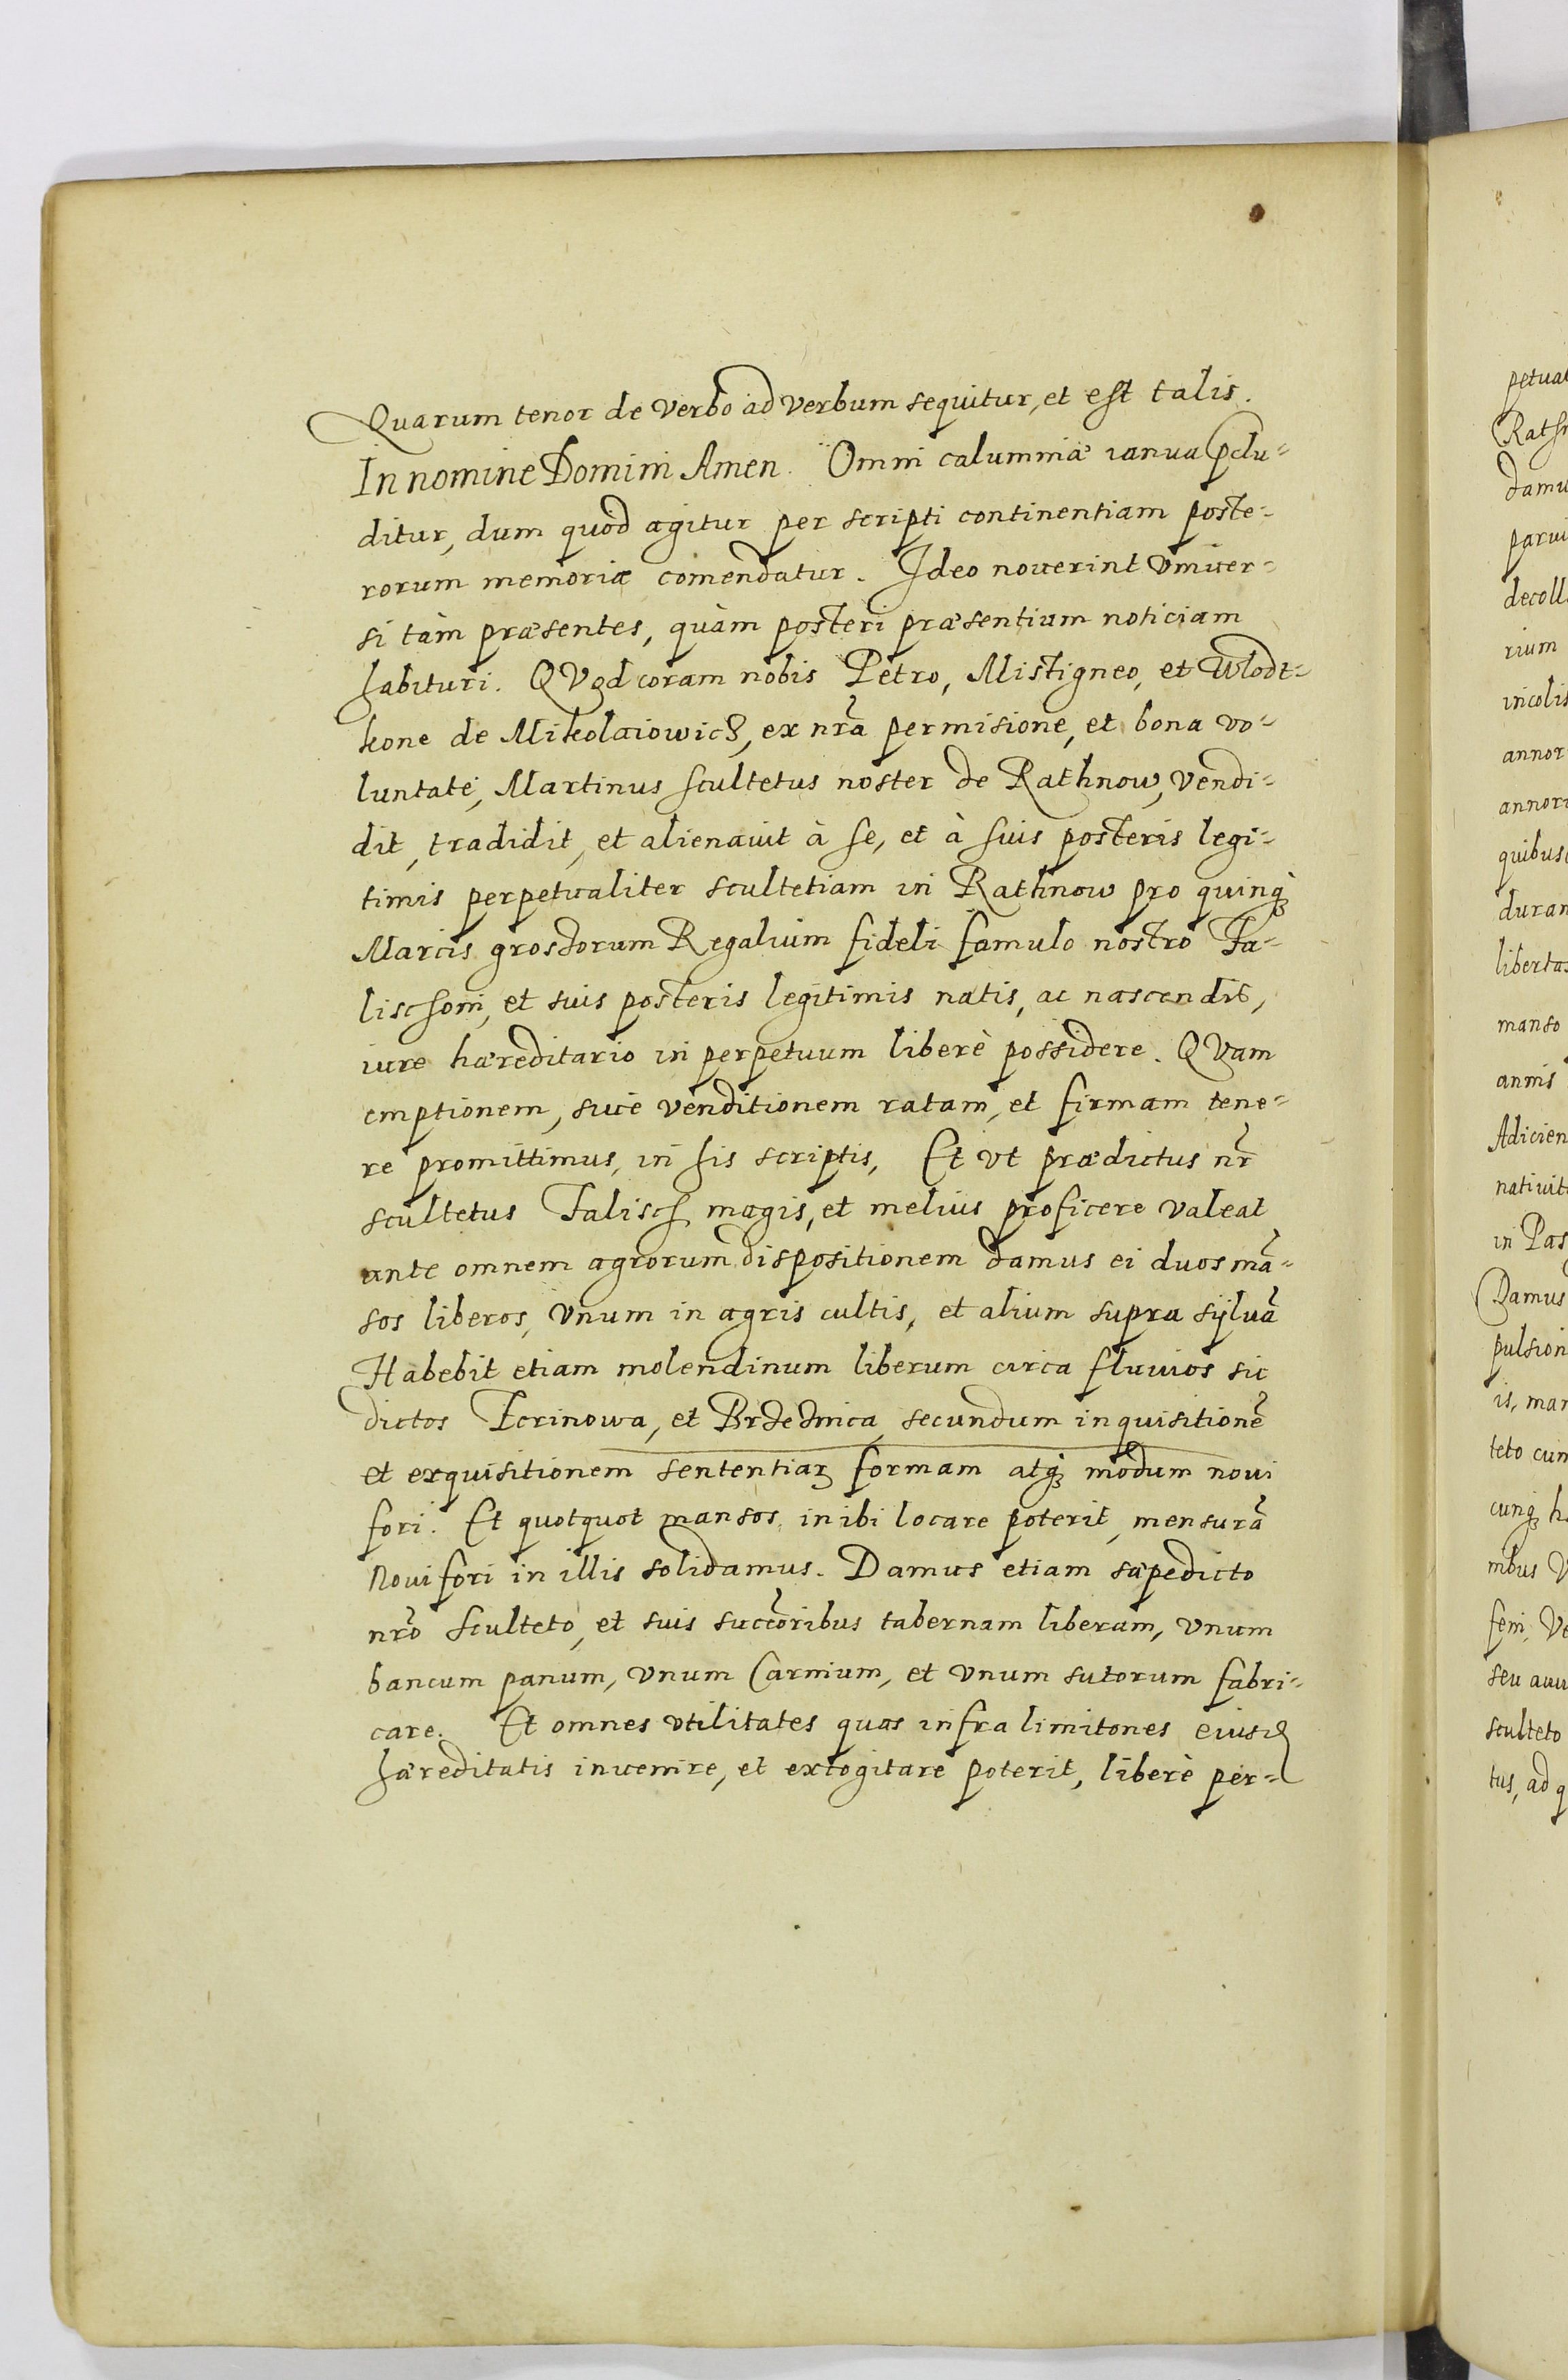 Quarum tenor de verbo ad verbum sequitur, et est talis.
In nomine Domini Amen. Omni calumniæ ianua pclu-
ditur, dum quod agitur per scripti continentiam poste-
rorum memoriæ comendatur. Ideo noverint Univer-
si tàm præsentes, quàm posteri præsentium noticiam
habituri. QVod coram nobis Petro, Mistigneo, et Wlodt-
kone de Mikolaiowicz, ex nr̃a permisione, et bona vo-
luntate, Martinus scultetus noster de Rathnow, vendi-
dit, tradidit, et alienavit à se, et à suis posteris legi-
timis perpetualiter scultetiam in Rathnow pro quinq;
Marcis grossorum Regalium fideli famulo nostro Fa-
lischoni, et suis posteris legitimis natis, ac nascendis,
iure hæreditario in perpetuum liberè possidere. QVam
emptionem, sive venditionem ratam, et firmam tene-
re promittimus, in his scriptis, Et vt prædictus nr̃
scultetus Falisch magis, et melius proficere valeat
ante omnem agrorum dispositionem damus ei duos mã-
sos liberos, Vnum in agris cultis, et alium supra sÿluã
Habebit etiam molendinum liberum circa fluuios sic
dictos et secundum inquisitionẽ
et exquisitionem sententiaꝝ formam atq; modum noui
fori. Et quotquot mansos, inibi locare poterit, mensurã
Noui fori in illis solidamus. Damus etiam sæpedicto
nr̃o Sculteto, et suis succõribus tabernam liberam, vnum
bancum panum, vnum Carnium, et vnum sutorum fabri-
care. Et omnes vtilitates quas infra limitones eiusd
hæreditatis invenire, et excogitare poterit, liberè per-
petuat
Rathn
damu
parui
decoll
rium
incolis
annor
annoru
quibus
duran
libertas
manso
annis
Adicien
nativit
in Pas
Damus
pulsion
is, man
teto cum
cunq; h
nibus V
feni, Ve
seu
sculteto
tus, ad q